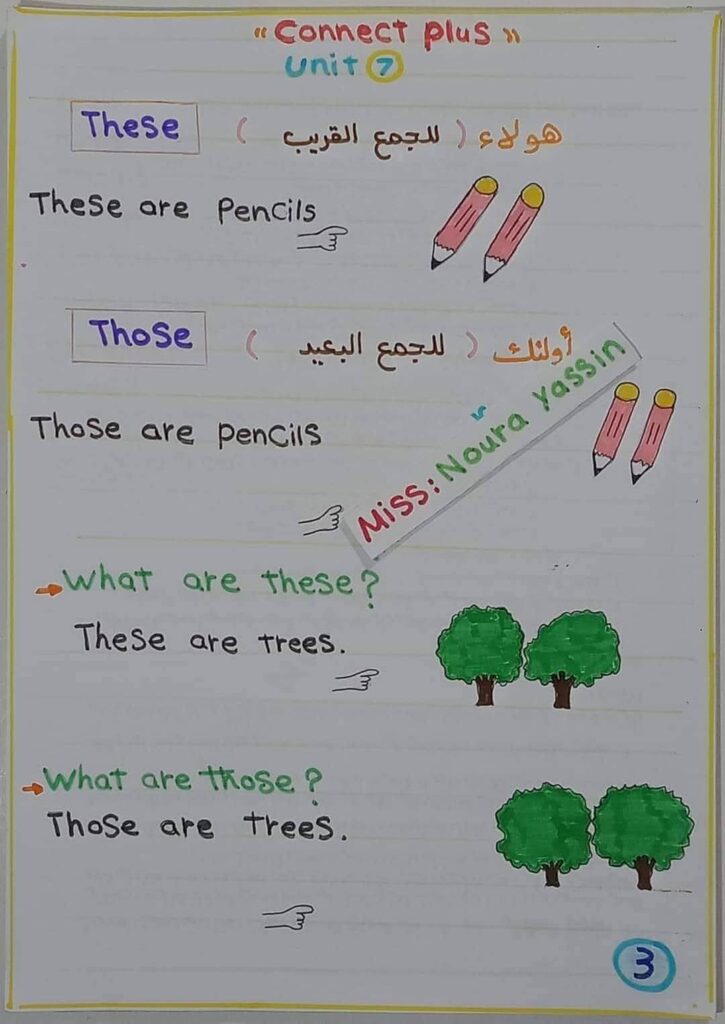 “Connect plus”
Unit 7
These ( للجمع القريب ) هولاء
These are pencils
Those ( للجمع البعيد ) أولئك
Those are pencils
Miss: Noura Yassin
What are these?
These are trees.
What are those?
Those are trees.
3